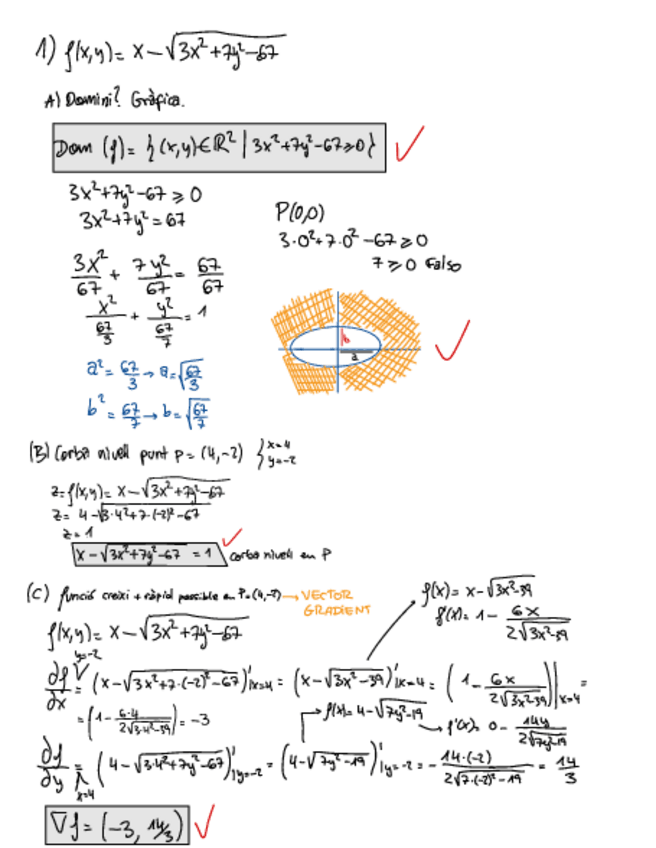 1) f(x,y) = x - √(3x²+7y²-67)
A) Domini? Gràfica.
Dom (f) = {(x,y)∈ℝ² | 3x²+7y²-67≥0}
3x²+7y²-67 ≥ 0
3x²+7y² = 67
P(0,0)
3·0²+7·0²-67 ≥ 0
7 ≥ 0 Falso
3x²/67 + 7y²/67 = 67/67
x²/(67/3) + y²/(67/7) = 1
b
a
a² = 67/3 → a = √(67/3)
b² = 67/7 → b = √(67/7)
(B) Corba nivell punt P = (4,-2) { x=4 y=-2
z = f(x,y) = x - √(3x²+7y²-67)
z = 4 - √(3·4²+7·(-2)²-67)
z = 1
x - √(3x²+7y²-67) = 1 corba nivell en P
(C) funció creixi + ràpid possible en P=(4,-2) → VECTOR GRADIENT
f(x,y) = x - √(3x²+7y²-67)
f(x) = x - √(3x²-39)
f'(x) = 1 - 6x/(2√(3x²-39))
y=-2
∂f/∂x = (x - √(3x²+7·(-2)²-67))'|x=4 = (x - √(3x²-39))'|x=4 = (1 - 6x/(2√(3x²-39)))|x=4 =
= (1 - 6·4/(2√(3·4²-39))) = -3
f(x) = 4 - √(7y²-19) → f'(x) = 0 - 14y/(2√(7y²-19))
∂f/∂y = (4 - √(3·4²+7y²-67))'|y=-2 = (4 - √(7y²-19))'|y=-2 = - 14·(-2)/(2√(7·(-2)²-19)) = 14/3
x=4
∇f = (-3, 14/3)